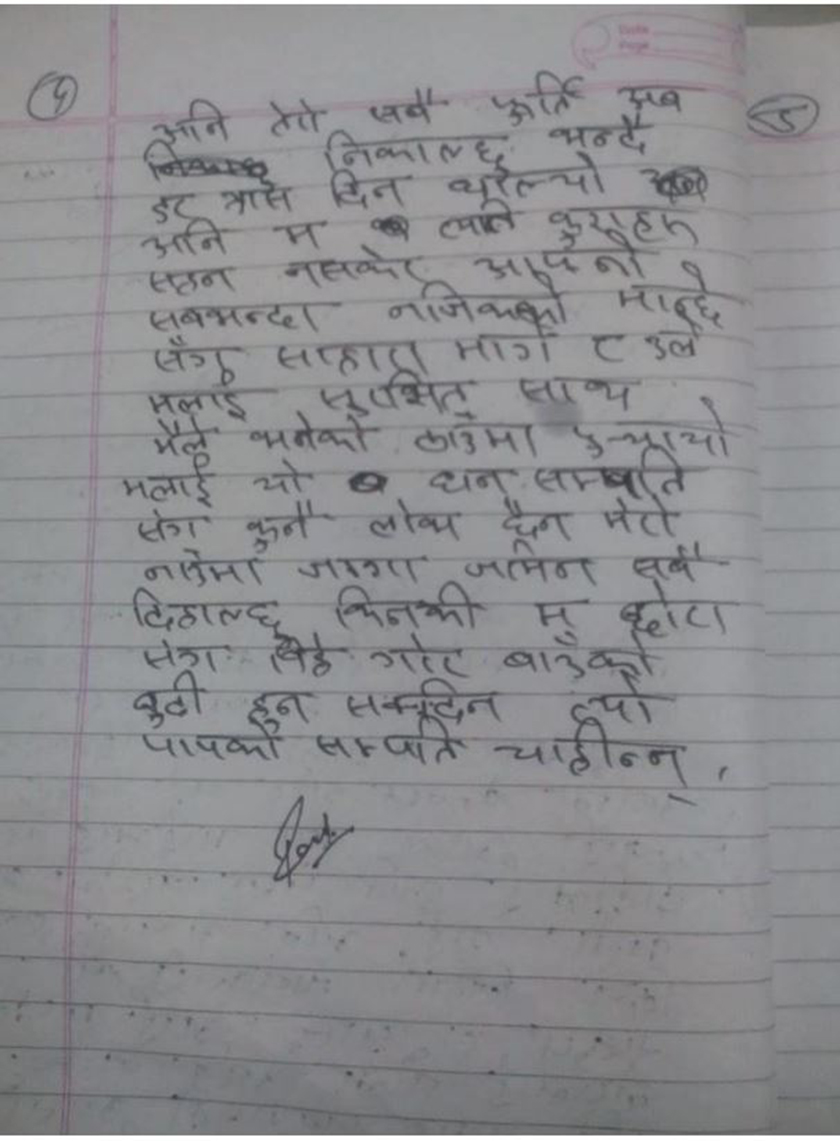 ५
५
अनि तेरो सबै फुर्ति अब
निकाल्छु भन्दै
डर त्रास दिन थाल्यो
अनि म त्यति कुराहरु
सहन नसकेर आफ्नो
सबभन्दा नजिकको मान्छे
सँग साहारा मागें र उसले
मलाई सुरक्षित साथ
मैले भनेको ठाउँमा पुर्‍यायो
मलाई यो धन सम्पति
संग कुनै लोभ छैन मेरो
नाउँमा जग्गा जमिन सबै
दिहाल्छु किनकी म छोरा
संग बिहे गरेर बाउको
बुढी हुन सक्दिन त्यो
पापको सम्पति चाहीन्न्,